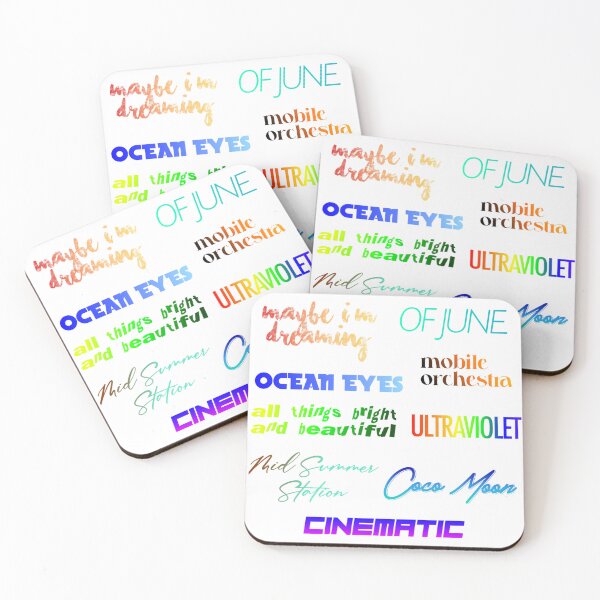 maybe i m
dreaming
OF JUNE
mobile
orchestra
OCEAN EYES
all things
and
maybe i m
dreaming
OF JUNE
mobile
orchestra
OCEAN EYES
all things bright
and beautiful
ULTRAVIOLET
Mid Summer
Coco Moon
maybe i m
dreaming
OF JUNE
mobile
orchestra
OCEAN EYES
all things bright
and beautiful
ULTRAVIOLET
Mid Summer
Station
Coco
CINEMATIC
maybe i m
dreaming
OF JUNE
mobile
orchestra
OCEAN EYES
all things bright
and beautiful
ULTRAVIOLET
Mid Summer
Station
Coco Moon
CINEMATIC